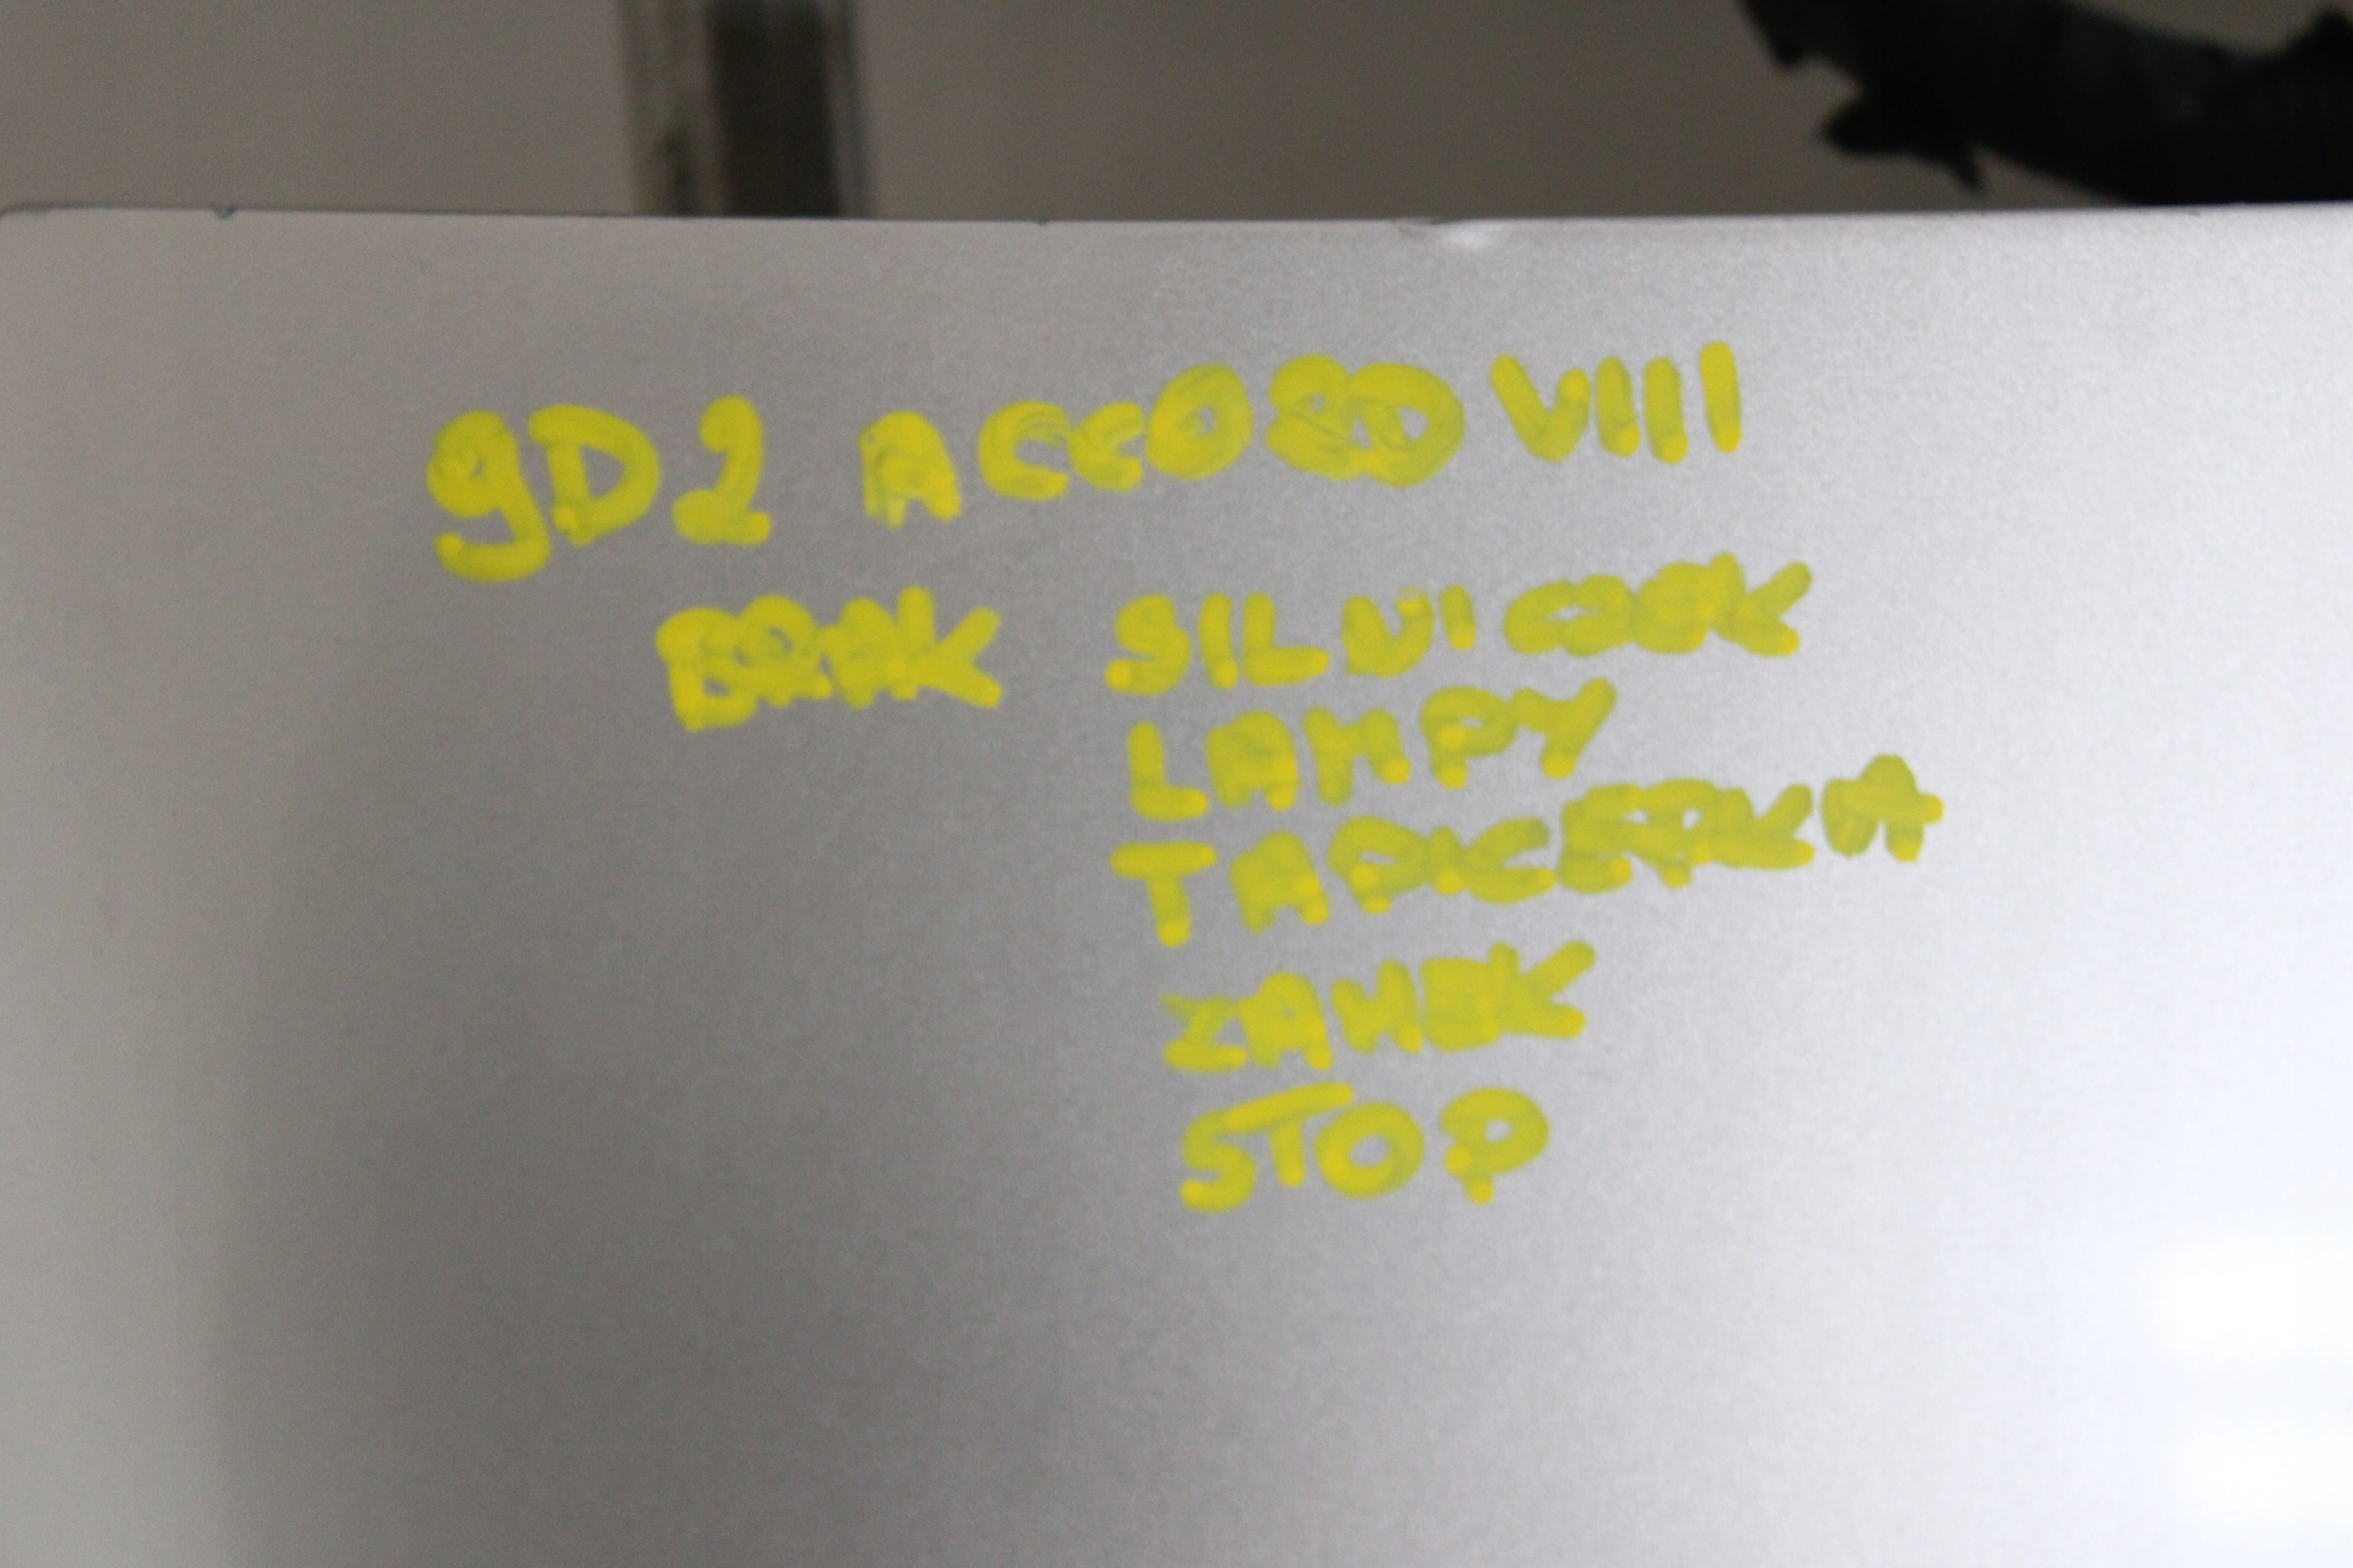 9D2 ACCORD VIII
BRAK SILNICZEK
LAMPY
TAPICERKA
ZAMEK
STOP